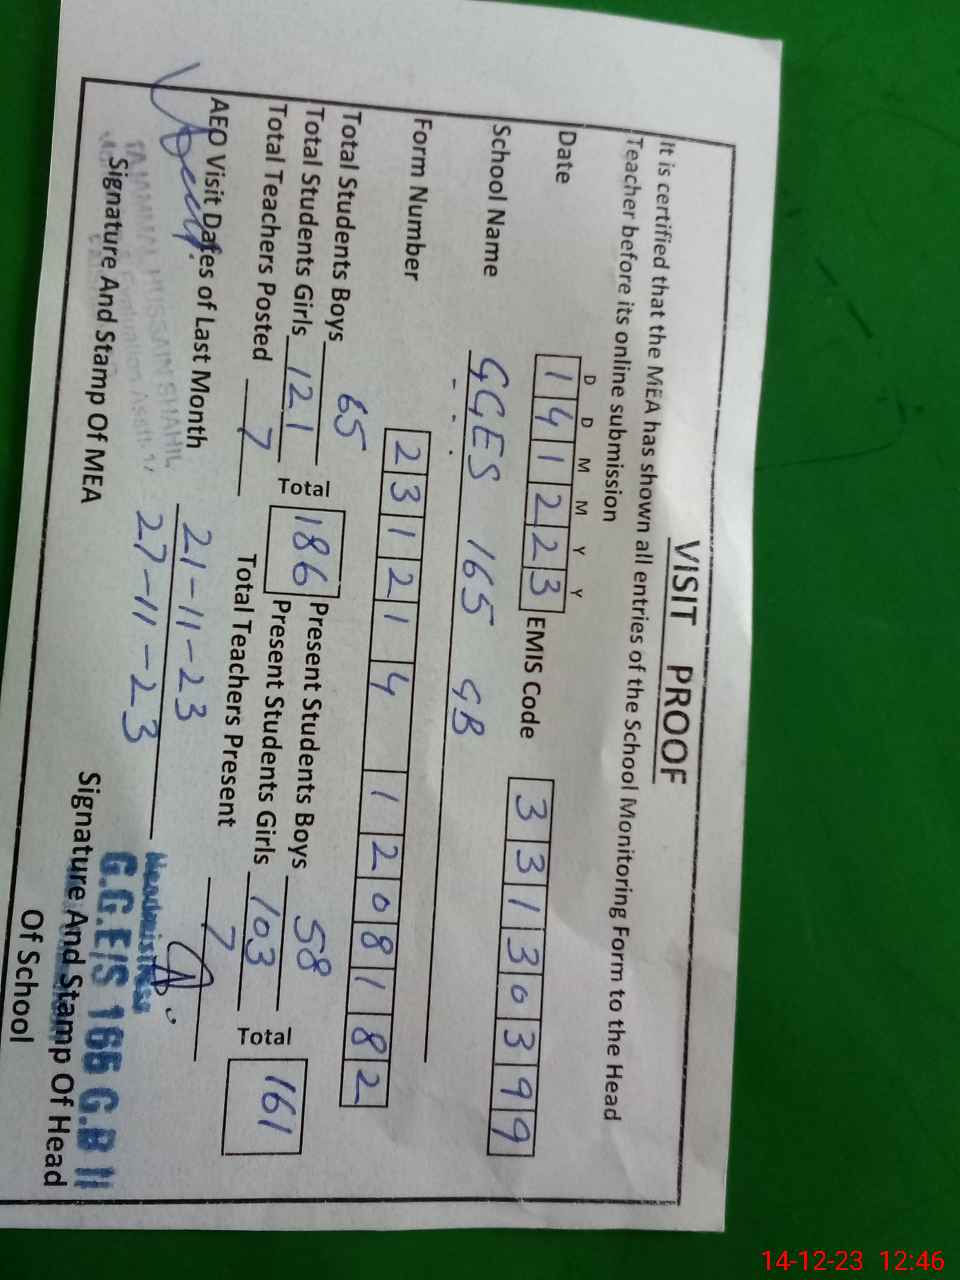 VISIT PROOF
It is certified that the MEA has shown all entries of the School Monitoring Form to the Head
Teacher before its online submission
D D M M Y Y
Date 141223 EMIS Code 33130399
School Name GGES 165 GB
Form Number 231214 1208182
Total Students Boys 65 Present Students Boys 58
Total Students Girls 121 Total 186 Present Students Girls 103 Total 161
Total Teachers Posted 7 Total Teachers Present 7
AEO Visit Dates of Last Month 21-11-23
27-11-23
TAJAMMAL HUSSAIN SHAHIL
Signature And Stamp Of MEA
Headmistress
G.G.E/S 166 G.B II
Signature And Stamp Of Head
Of School
14-12-23 12:46